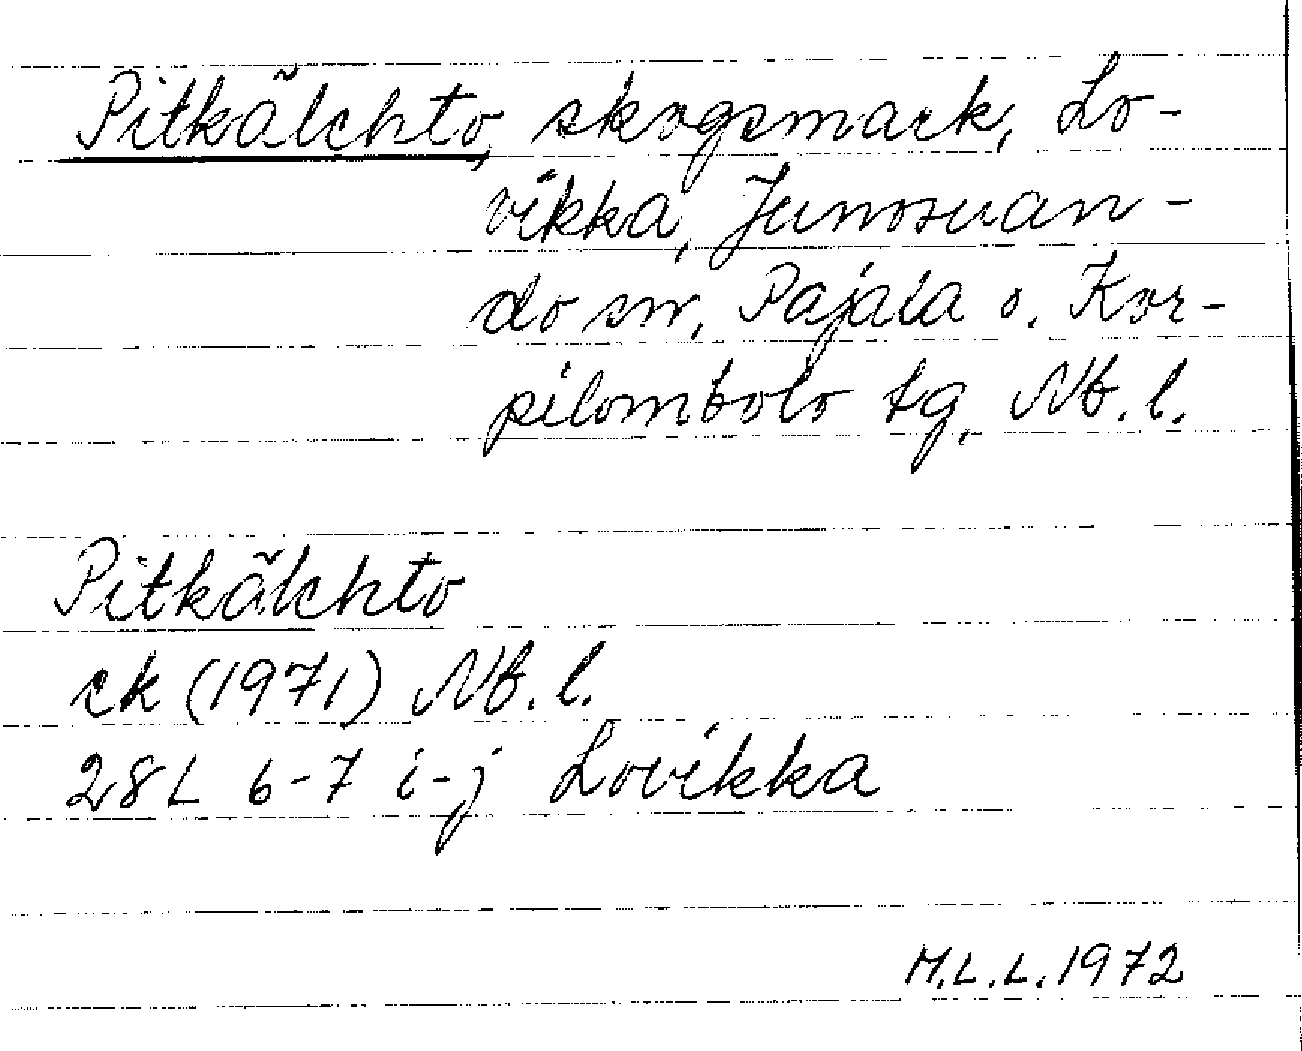 Pitkälehto, skogsmark, Lo-
vikka, Junosuan-
do sn, Pajala o. Kor-
pilombolo tg, Nb. l.
Pitkälehto
ek (1971) Nb. l.
28L 6-7 i-j Lovikka
M.L.L. 1972